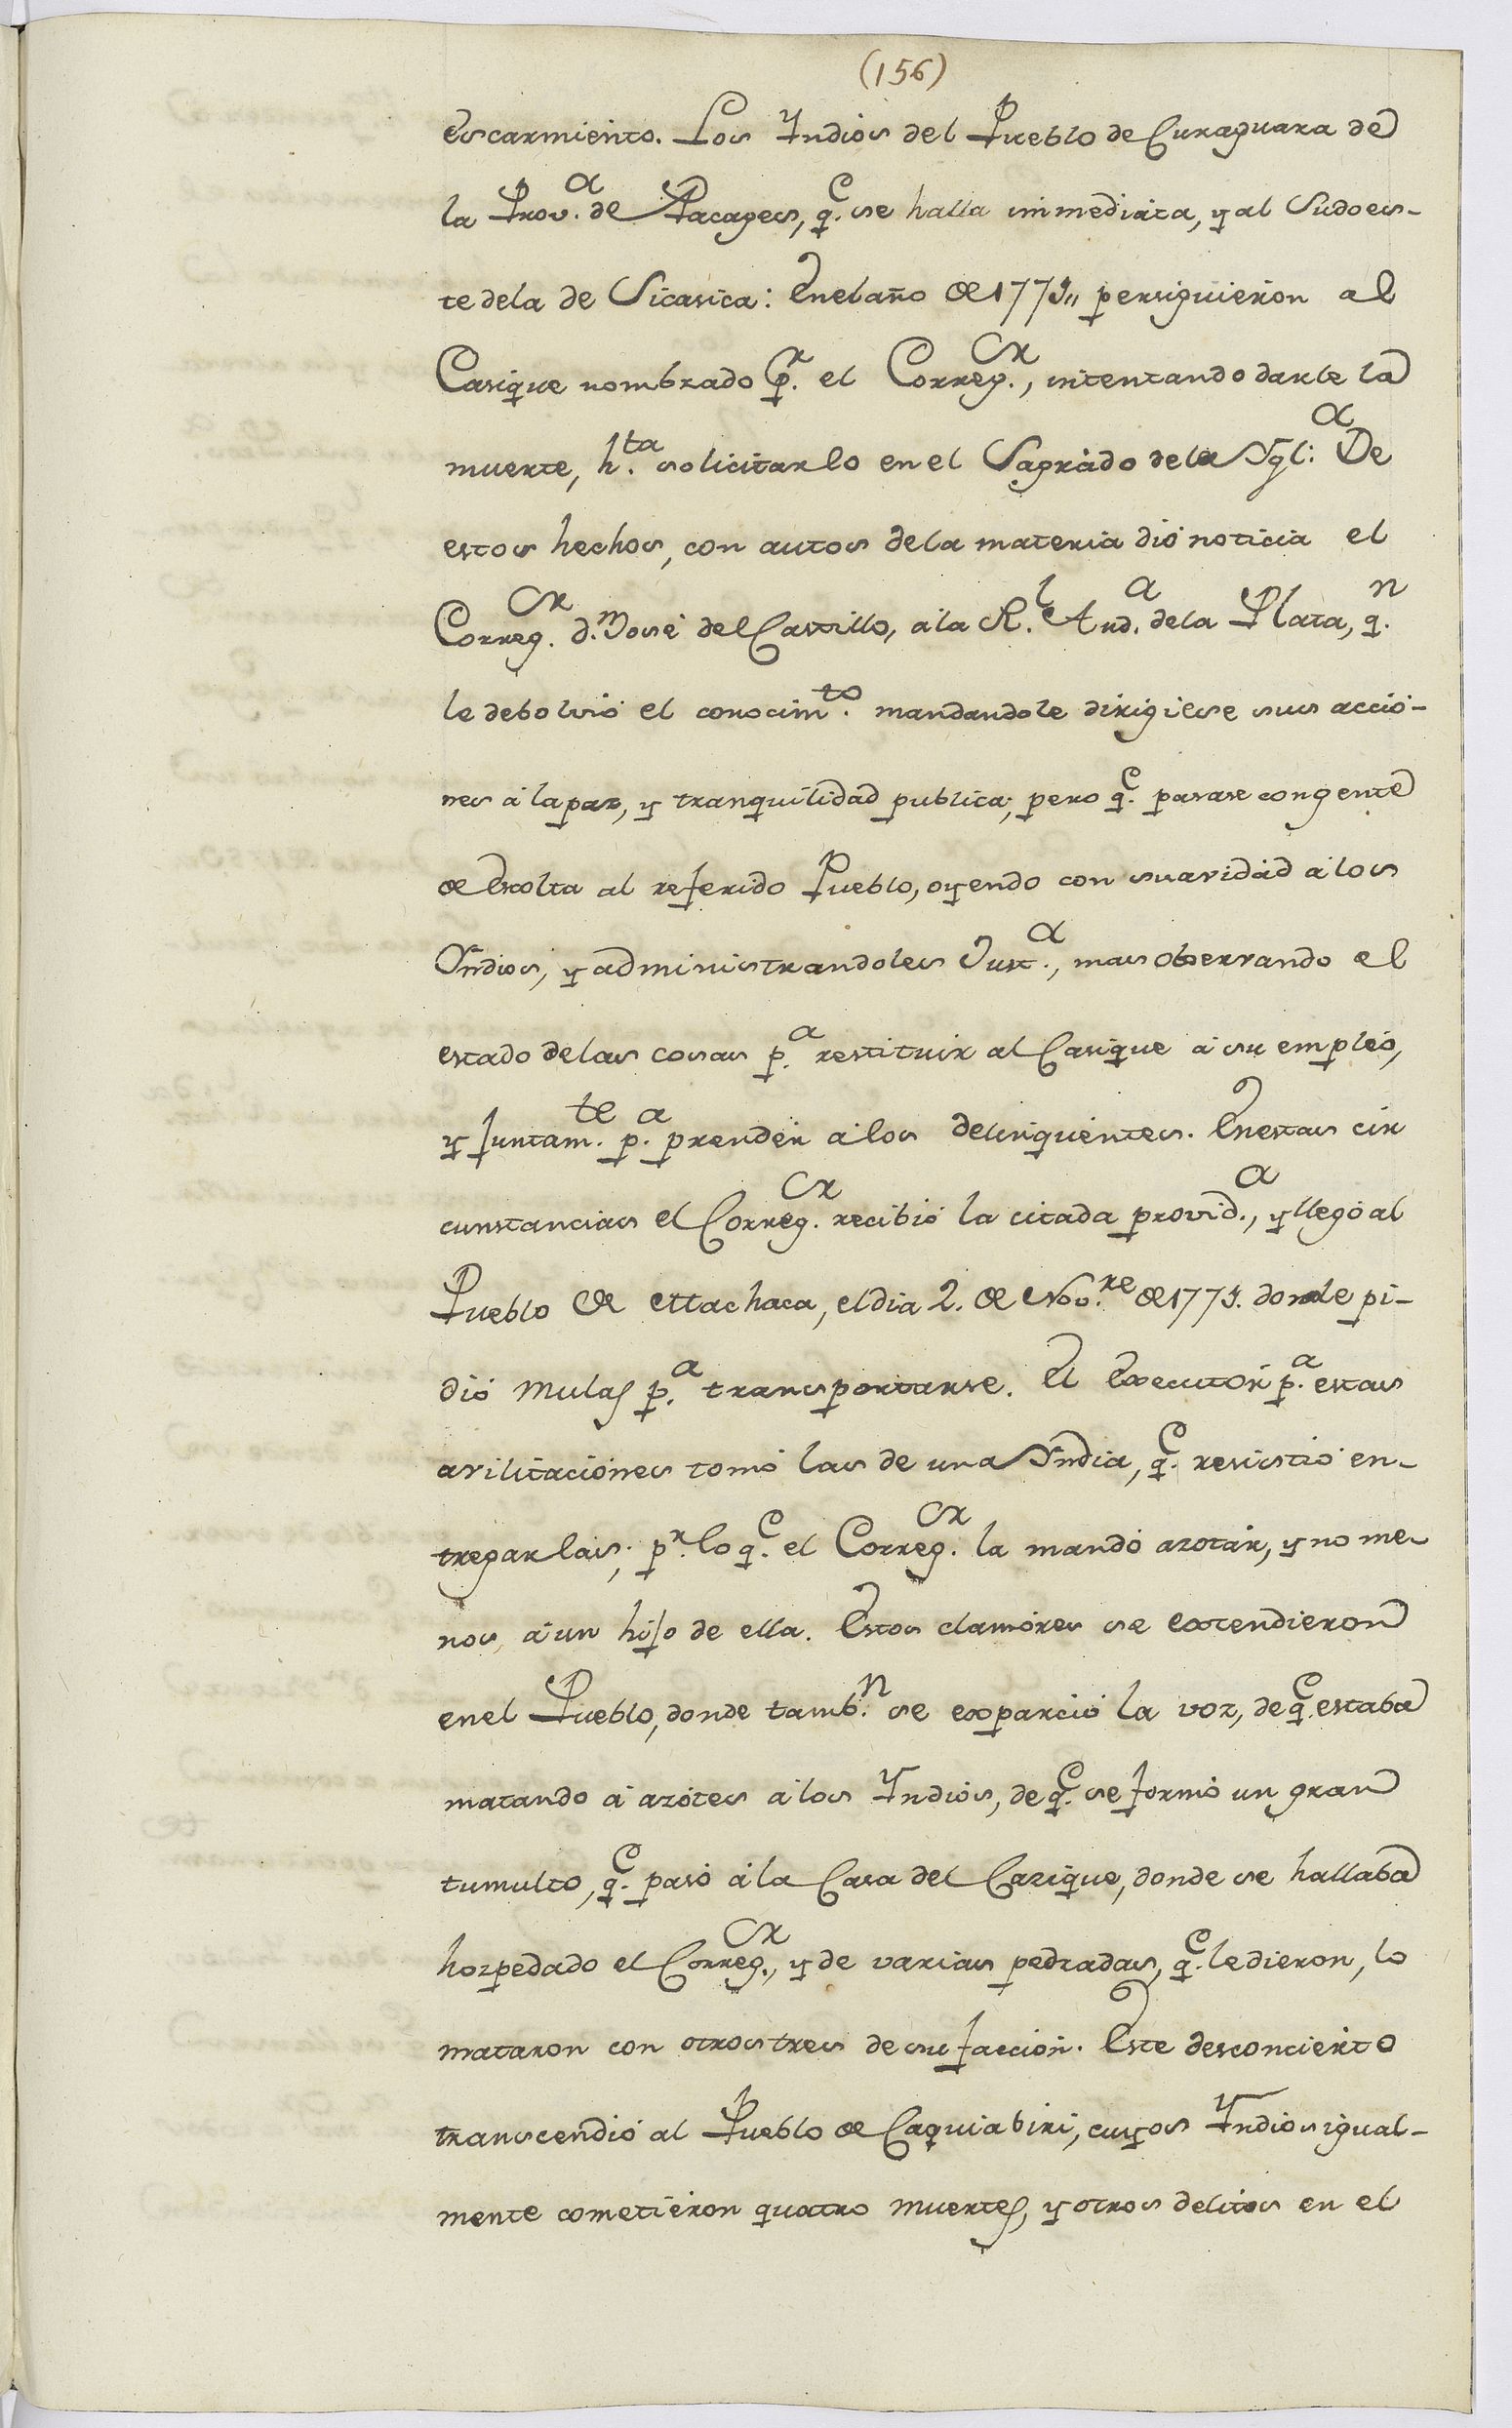 (156)
escarmiento. Los Yndios del Pueblo de Curaguara de
la Prov.ᵃ de Pacages, q.ᵉ se halla immediata, y al Sudoes-
te dela de Sicasica: Enelaño de 1773,, persiguieron al
Casique nombrado p.ʳ el Correg.ᵒʳ, intentando darle la
muerte, h.ᵗᵃ solicitarlo en el Sagrado dela Ygl:ᵃ De
estos hechos, con autos dela materia dió noticia el
Correg.ᵒʳ d.ⁿ José del Castillo, ála R.ˡ Aud.ᵃ dela Plata, q.ⁿ
le debolvió el conocim.ᵗᵒ mandandole dirigiese sus accio-
nes á la paz, y tranquilidad publica; pero q.ᵉ pasase con gente
de Escolta al referido Pueblo, oyendo con suavidad á los
Yndios, y administrandoles Just.ᵃ, mas observando el
estado delas cosas p.ᵃ restituir al Casique á su empleo,
y juntam.ᵗᵉ p.ᵃ prender álos delinquentes. Enestas cir
cunstancias el Correg.ᵒʳ recibió la citada provid.ᵃ, y llegó al
Pueblo de Machaca, el dia 2. de Nov.ʳᵉ de 1773. donde pi-
dió mulas p.ᵃ transportarse. El Executór p.ᵃ estas
avilitaciónes tomó las de una Yndia, q.ᵉ resistió en-
tregarlas; p.ʳ lo q.ᵉ el Correg.ᵒʳ la mandó azotár, y no me-
nos, á un hijo de ella. Estos clamóres se extendieron
enel Pueblo, donde tamb.ⁿ se exparció la voz, de q.ᵉ estaba
matando á azótes álos Yndios, de q.ᵉ se formó un gran
tumulto, q.ᵉ pasó ála Casa del Cazique, donde se hallaba
hozpedado el Correg.ᵒʳ, y de varias pedradas, q.ᵉ le dieron, lo
mataron con otros tres de su facción. Este desconcierto
transcendió al Pueblo de Caquiabiri, cuyos Yndios igual-
mente cometieron quatro muertes, y otros delitos en el